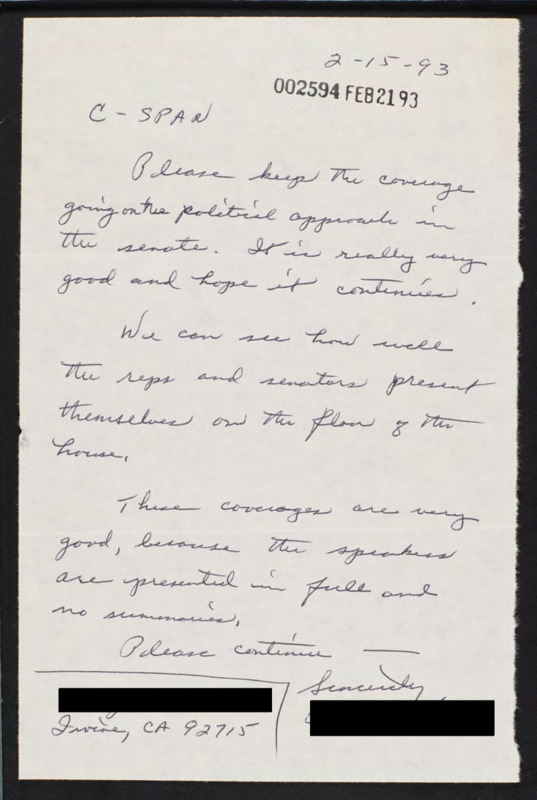 2-15-93
002594 FEB 21 93
C-SPAN
Please keep the coverage
going on the political approach in
the senate. It is really very
good and hope it continues.
We can see how well
the reps and senators present
themselves on the floor of the
house.
These coverages are very
good, because the speakers
are presented in full and
no summaries.
Please continue —
Sincerely,
Irvine, CA 92715